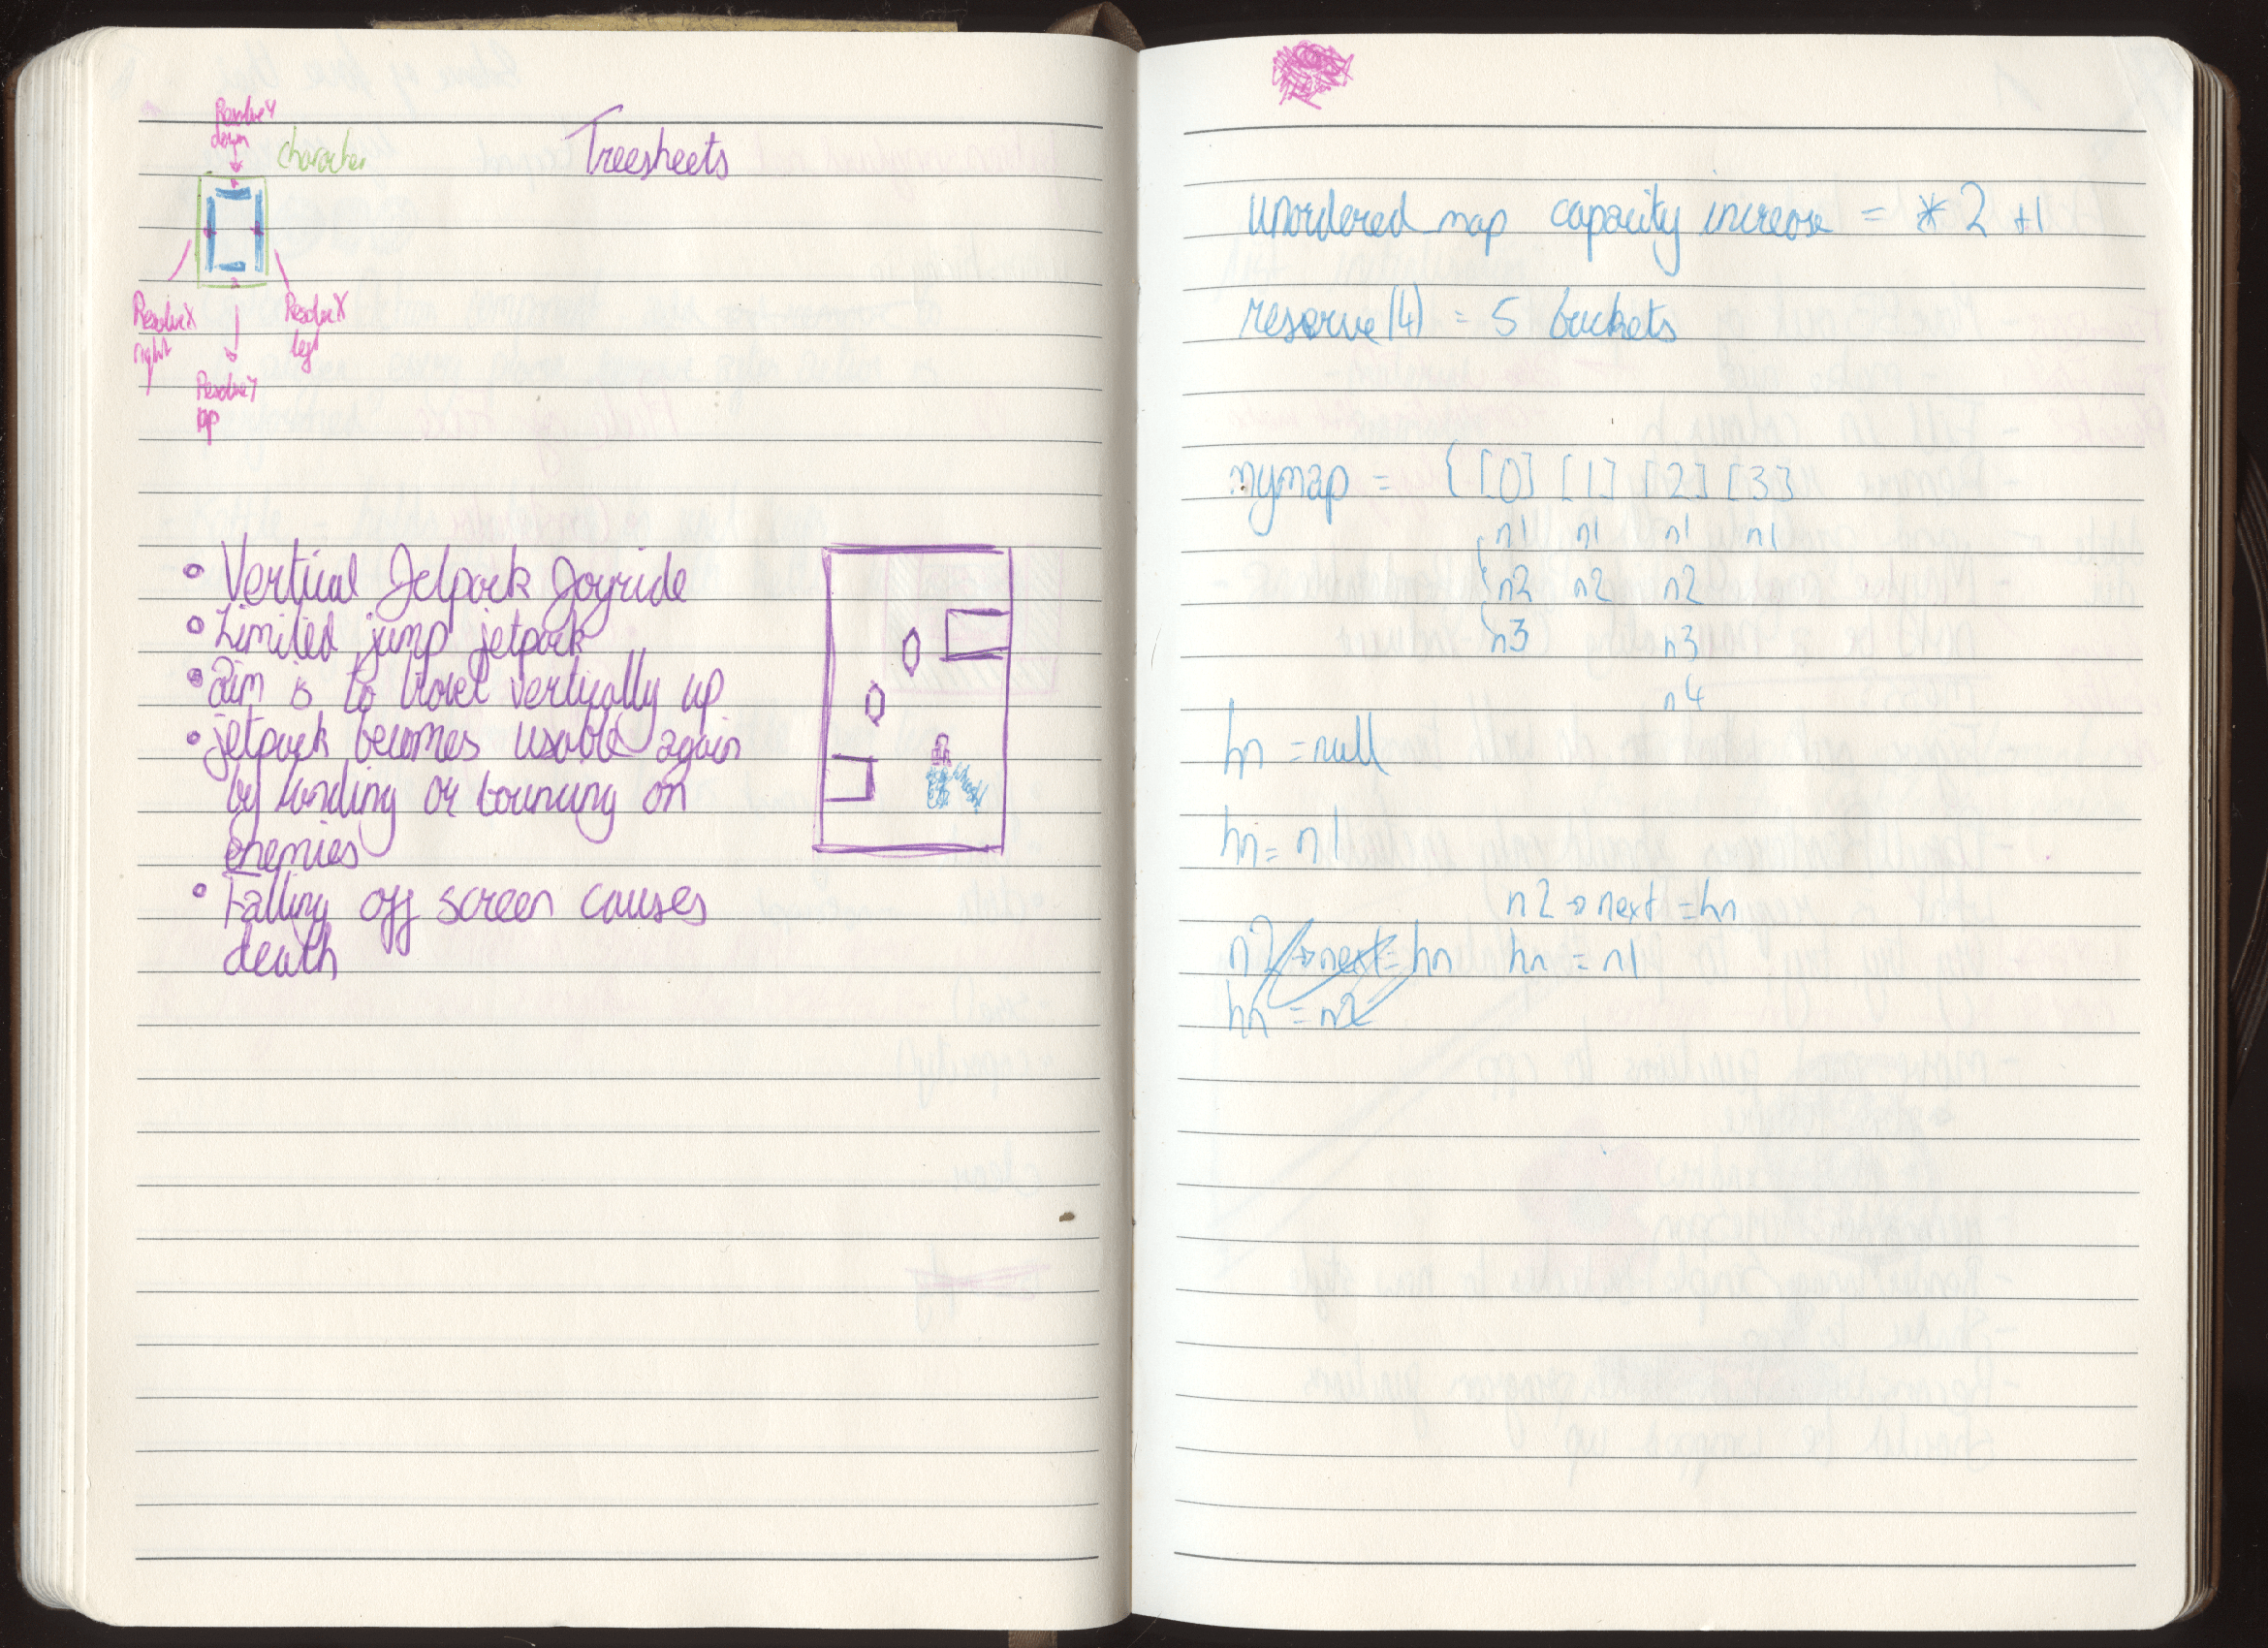 ResolveY
down
character
Treesheets
ResolveX
right
ResolveX
left
ResolveY
up
• Vertical Jetpack Joyride
• Limited jump jetpack
• aim is to travel vertically up
• jetpack becomes usable again
by landing or bouncing on
enemies
• Falling off screen causes
death
unordered_map capacity increase = * 2 +1
reserve(4) = 5 buckets
mymap = { [0] [1] [2] [3]
n1 n1 n1 n1
n2 n2 n2
n3 n3
n4
hn = null
hn = n1
n2 → next = hn
n2 → next = hn hn = n1
hn = n2